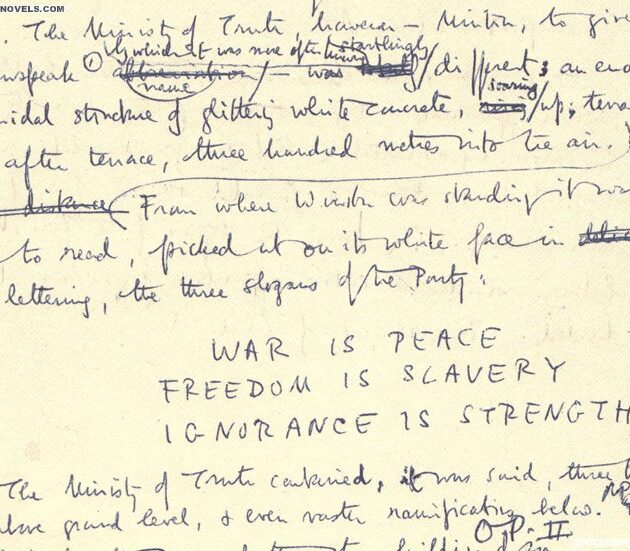 NOVELS.COM
. The Ministry of Truth, however — Minitru, to give
by which it was more often known startlingly
wspeak abbreviation name / — was / different; an eno
soaring
midal structure of glittering white concrete, rising / up, terra
after terrace, three hundred metres into the air.
distance From where Winston was standing it was
to read, picked out on its white face in
lettering, the three slogans of the Party:
WAR IS PEACE
FREEDOM IS SLAVERY
IGNORANCE IS STRENGTH
The Ministry of Truth contained, it was said, three
above ground level, & even vaster ramifications below.
O.P. II